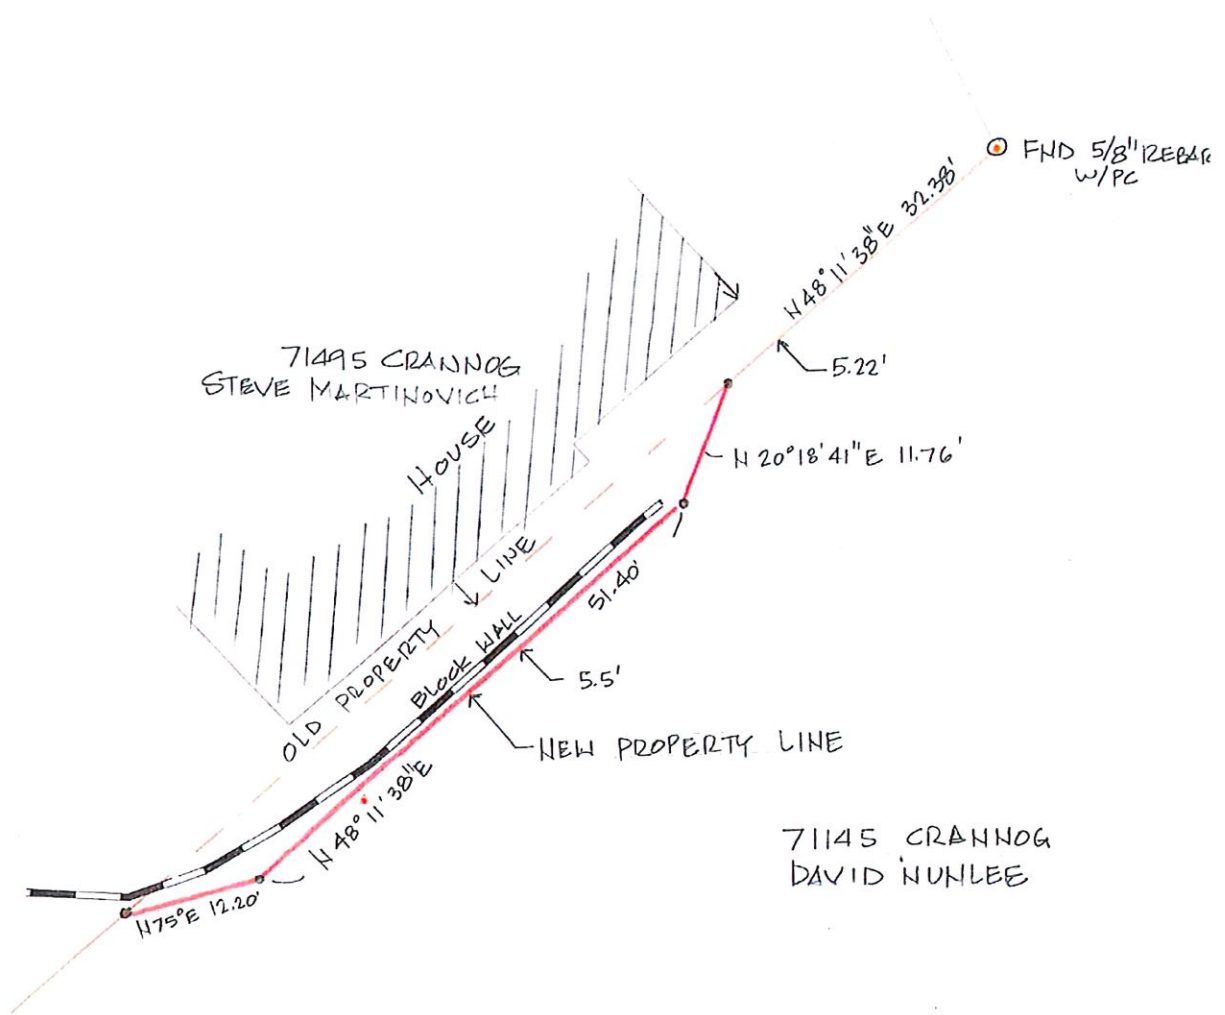 FND 5/8" REBAR
W/PC
N 48° 11' 38" E 32.38'
71495 CRANNOG
STEVE MARTINOVICH
HOUSE
5.22'
N 20° 18' 41" E 11.76'
OLD PROPERTY LINE
BLOCK WALL
51.40'
5.5'
NEW PROPERTY LINE
N 48° 11' 38" E
71145 CRANNOG
DAVID NUNLEE
N75°E 12.20'